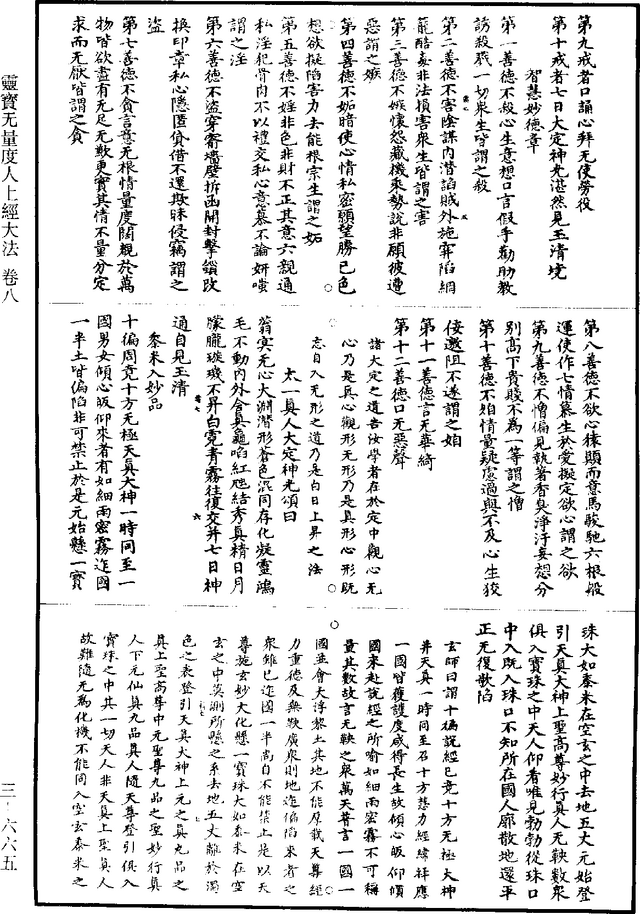 第九戒者口誦心拜无使勞役
第十戒者七日大定神光湛然見玉清境
智慧妙德章
第一善德不殺心生意想口言假手勸助教
訪殺戮一切衆生皆謂之殺
第二善德不害陰謀內潛諂賊外施穽陷網
籠酷毒非法損害衆生皆謂之害
第三善德不嫉懷怨藏機乘勢說非願彼遭
惡謂之嫉
第四善德不妬暗使心情私密頭望勝己色
想欲擬陷害力去能根宗生謂之妬
第五善德不婬非色非財不正其意六親通
私淫犯骨肉不以禮交私心意慕不論妍嗤
謂之淫
第六善德不盜穿窬墻壁拆函開封擊鎖改
換印章私心隱匿貸借不還欺昧侵竊謂之
盜
第七善德不貪言意无根情量度闊覩於萬
物皆欲盡有无足无歎更實其情不量分定
求而无厭皆謂之貪
第八善德不欲心猿顯而意馬駿馳六根般
運使作七情慕生於愛擬定欲心謂之欲
第九善德不憎偏見執著香臭淨汙妄想分
別高下貴賤不為一等謂之憎
第十善德不妒情量疑慮過與不及心生狡
佞邀阻不遂謂之妒
第十一善德言无華綺
第十二善德口无惡聲
諸大定之道吾汝學者在於定中觀心无
心乃是真心觀形无形乃是真形心形既
忘自入无形之道乃是白日上昇之法
太一真人大定神光頌曰
蓊寞无心大淵潛形蒼色混同存化凝靈鴻
毛不動內外含真龜吸紅匏結秀真精日月
朦朧璇璣不昇白霓青霧往復交并七日神
通自見玉清
黍米入妙品
十徧周竟十方无極天真大神一時同至一
國男女傾心皈仰來者有如細雨密霧迮國
一半土皆偏陷非可禁止於是元始懸一寶
珠大如黍米在空玄之中去地五丈元始登
引天真大神上聖高尊妙行真人无鞅數衆
俱入寶珠之中天人仰看唯見勃勃從珠口
中入既入珠口不知所在國人廓散地還平
正无復欹陷
玄師曰謂十徧說經已竟十方无極大神
并天真一時同至召十方慧力經緯祥應
一國皆獲護度咸得長生故傾心皈仰傾
國來赴說經之所喻如細雨密霧不可稱
量其數故言无鞅之衆萬天尊言一國一
國並會大浮黎土其地不能厚載天尊經
力重德及無鞅廣衆則地迮偏陷來者之
衆雖已迮國一半尚自不能禁止是以天
尊施玄妙大化懸一寶珠大如黍米在空
玄之中莫測所懸之系去地五丈離於濁
色之表登引天真大神上元之真九品之
真上聖高尊中元聖尊九品之聖妙行真
人下元仙真九品真人隨天尊登引俱入
寶珠之中其一切天人非天真上聖真人
故難隨元為化機不能同入空玄黍米之
靈寶无量度人上經大法 卷八
三-六六五